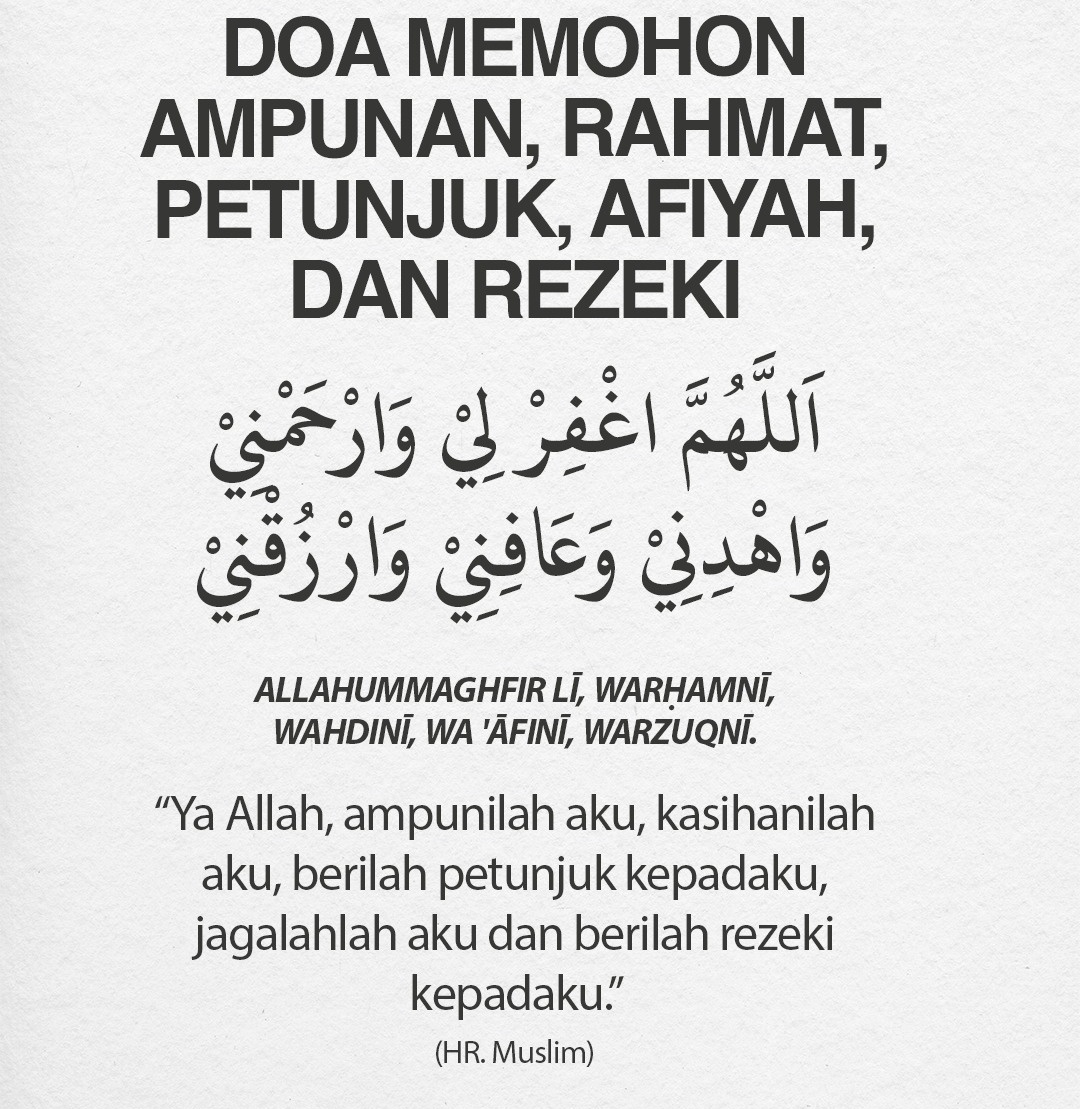 DOA MEMOHON
AMPUNAN, RAHMAT,
PETUNJUK, AFIYAH,
DAN REZEKI
اَللَّهُمَّ اغْفِرْ لِيْ وَارْحَمْنِيْ
وَاهْدِنِيْ وَعَافِنِيْ وَارْزُقْنِيْ
ALLAHUMMAGHFIR LĪ, WARḤAMNĪ,
WAHDINĪ, WA 'ĀFINĪ, WARZUQNĪ.
“Ya Allah, ampunilah aku, kasihanilah
aku, berilah petunjuk kepadaku,
jagalahlah aku dan berilah rezeki
kepadaku.”
(HR. Muslim)